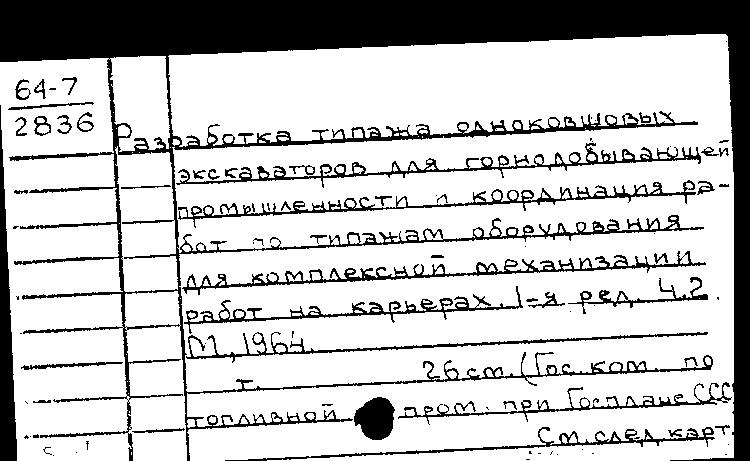 64-7
2836
Разработка типажа одноковшовых
экскаваторов для горнодобывающей
промышленности и координация ра-
бот по типажам оборудования
для комплексной механизации
работ на карьерах. 1-я ред. Ч.2.
М., 1964.
т. 26 см. (Гос. ком. по
топливной пром. при Госплане СССР
См. след. карт.